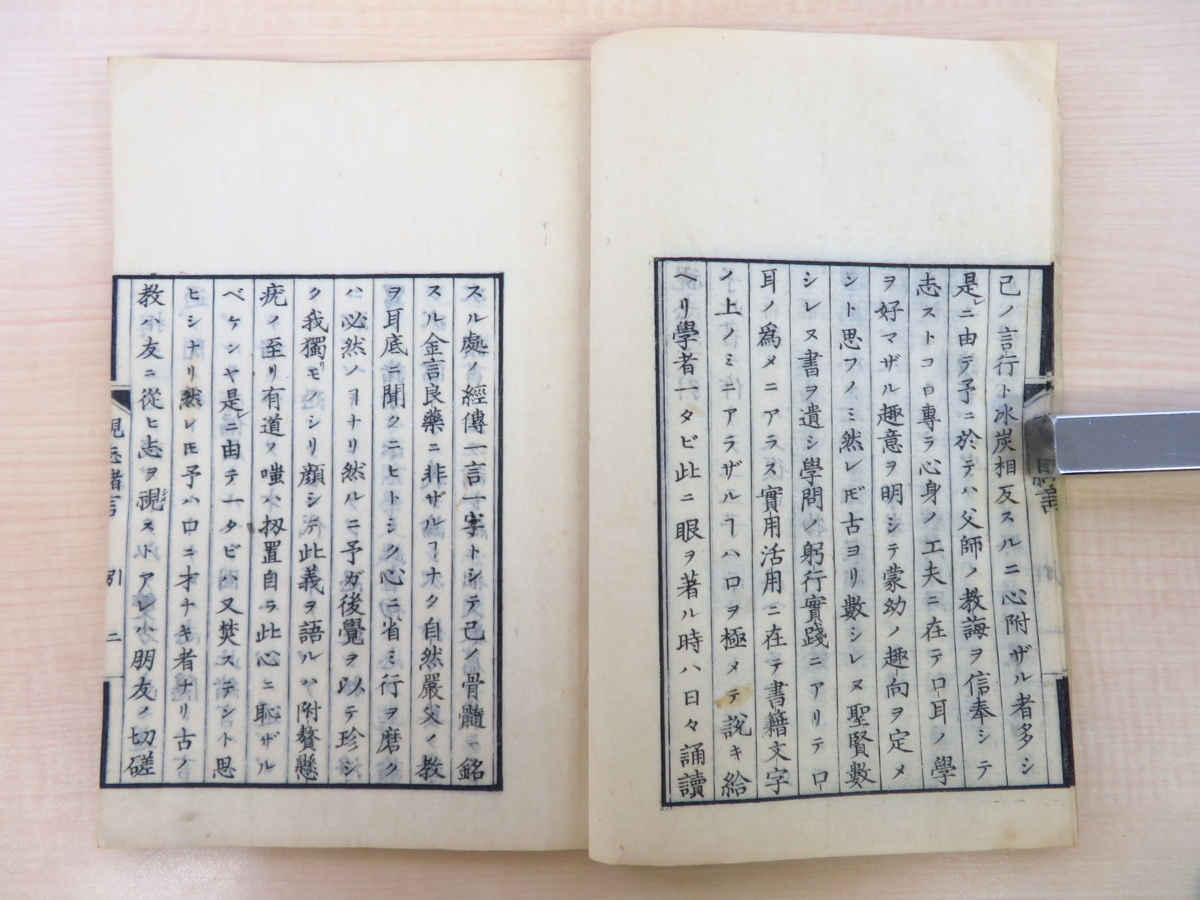 己ノ言行ト冰炭相反スルニ心附ザル者多シ
是レニ由テ予ニ於テハ父師ノ教誨ヲ信奉シテ
志ストコロ專ラ心身ノ工夫ニ在テ口耳ノ學
ヲ好マザル趣意ヲ明シテ蒙幼ノ趣向ヲ定メ
ント思フノミ然レ𪜈古ヨリ數シレヌ聖賢數
シレヌ書ヲ遺シ學問ノ躬行實踐ニアリテ口
耳ノ爲メニアラス實用活用ニ在テ書籍文字
ノ上ノミニアラザルヿハ口ヲ極メテ說キ給
ヘリ學者一タビ此ニ眼ヲ著ル時ハ日々誦讀
スル處ノ經傳一言一字トシテ己ノ骨髓ニ銘
スル金言良藥ニ非ザルヿナク自然嚴父ノ教
ヲ耳底ニ聞クニヒトシク心ニ省ミ行ヲ磨ク
ハ必然ノヿナリ然ルニ予ガ後覺ヲ以テ珍シ
ク我獨リモノシリ顔シテ此義ヲ語ルハ附贅懸
疣ノ至リ有道ノ嗤ハ扨置自ラ此心ニ恥ザル
ベケンヤ是レニ由テ一タビハ又焚ステント思
ヒシナリ然レ𪜈予ハ口ニ才ナキ者ナリ古ノ
教ハ友ニ從ヒ志ヲ視ストアレハ朋友ノ切磋
視志緒言 引 二